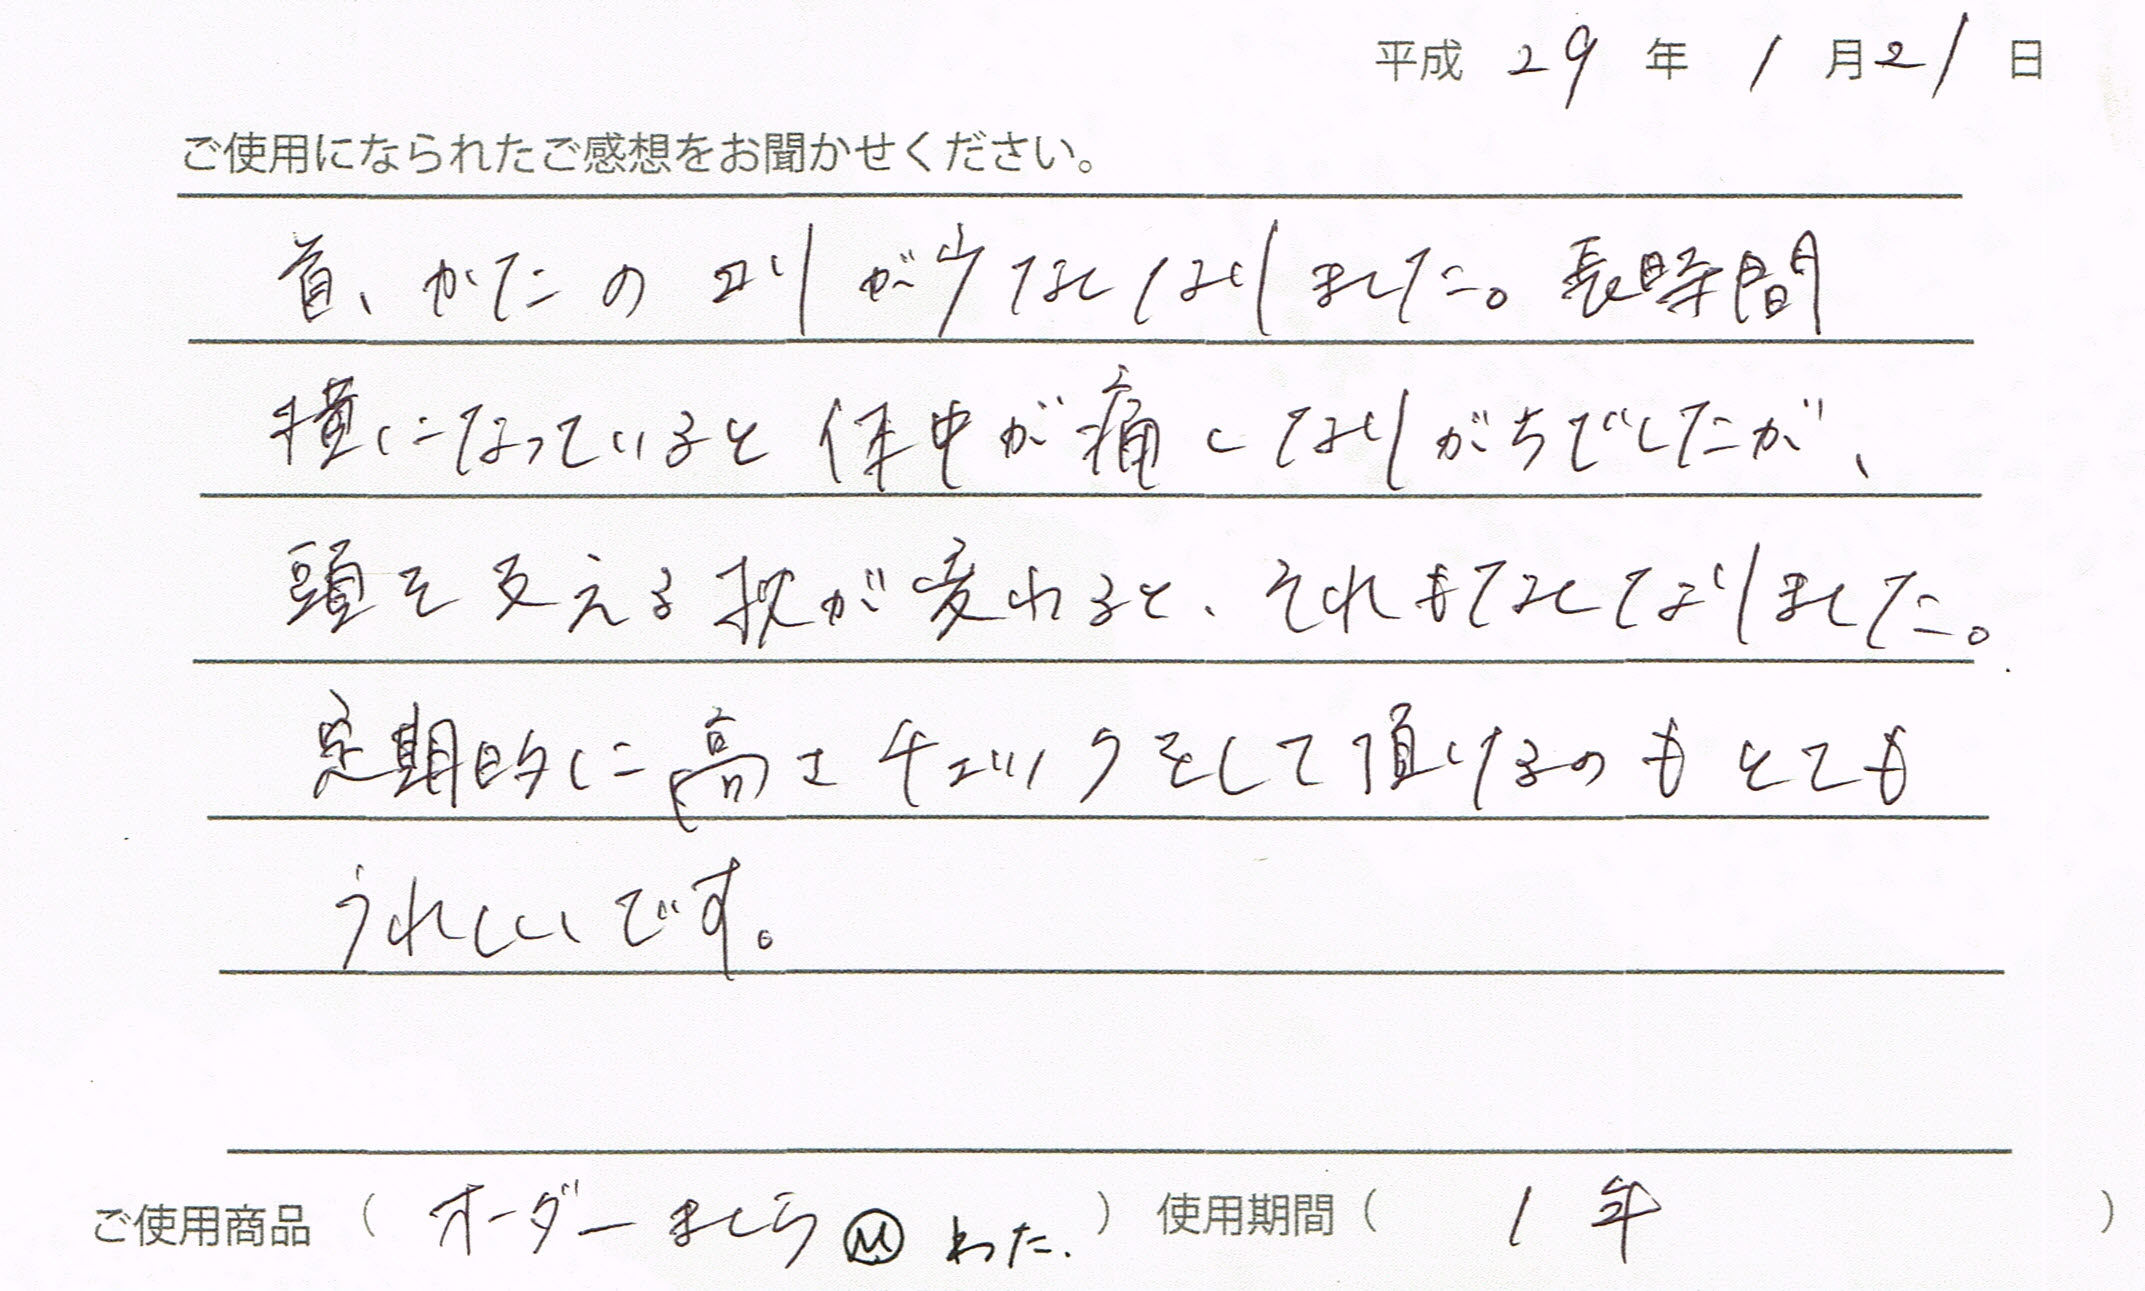 平成 29 年 1 月 21 日
ご使用になられたご感想をお聞かせください。
首、かたのコリが少なくなりました。長時間
横になっていると体中が痛くなりがちでしたが、
頭を支える枕が変わると、それもなくなりました。
定期的に高さチェックをして頂けるのもとても
うれしいです。
ご使用商品 ( オーダーまくら Ⓜ わた. ) 使用期間 ( 1年 )